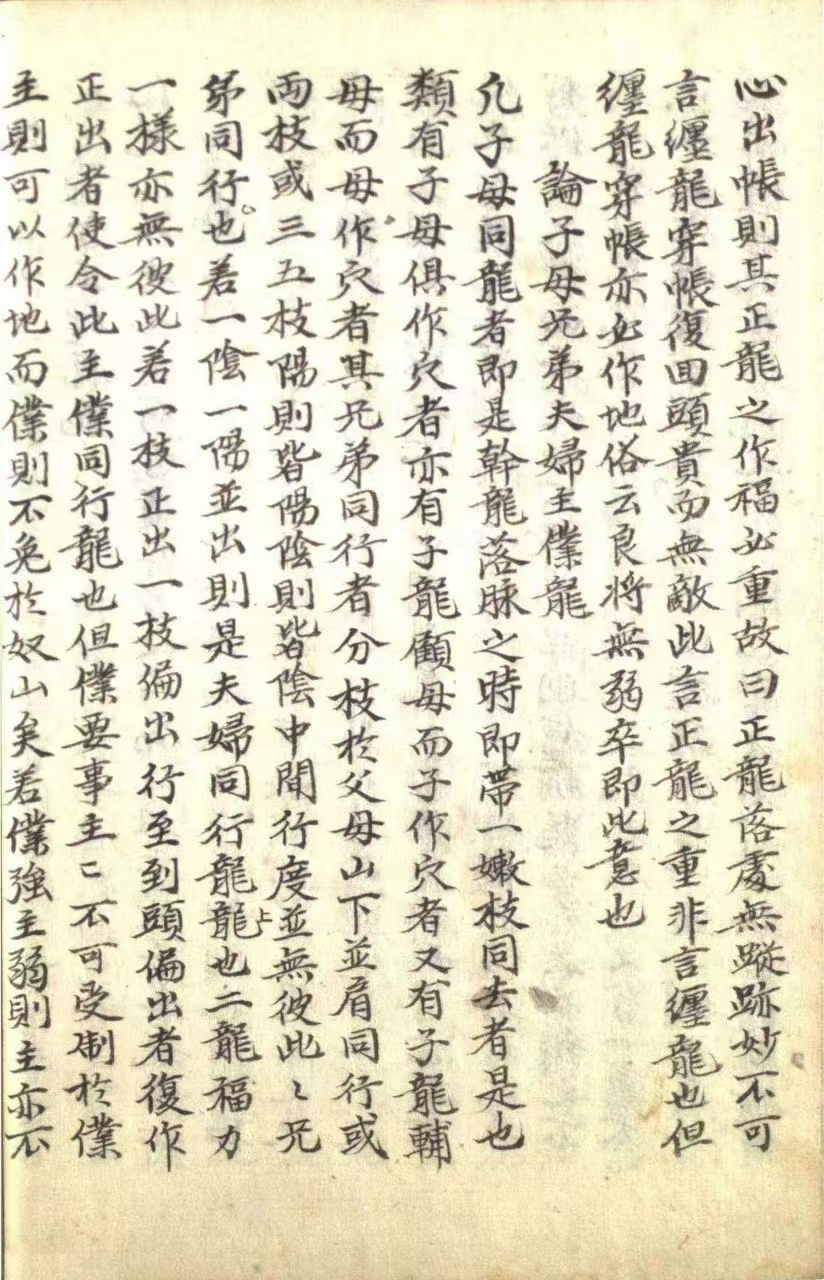 心出帳則其正龍之作福必重故曰正龍落處無蹤跡妙不可
言纏龍穿帳復回頭貴而無敵此言正龍之重非言纏龍也但
纏龍穿帳亦必作地俗云良将無弱卒即此意也
論子母兄弟夫婦主僕龍
凡子母同龍者即是幹龍落脉之時即帶一嫩枝同去者是也
類有子母俱作穴者亦有子龍顧母而子作穴者又有子龍輔
母而母作穴者其兄弟同行者分枝於父母山下並肩同行或
両枝或三五枝陽則皆陽陰則皆陰中間行度並無彼此〻兄
弟同行也若一陰一陽並出則是夫婦同行龍龍上也二龍福力
一樣亦無彼此若一枝正出一枝偏出行至到頭偏出者復作
正出者使令此主僕同行龍也但僕要事主〻不可受制於僕
主則可以作地而僕則不免於奴山矣若僕強主弱則主亦不